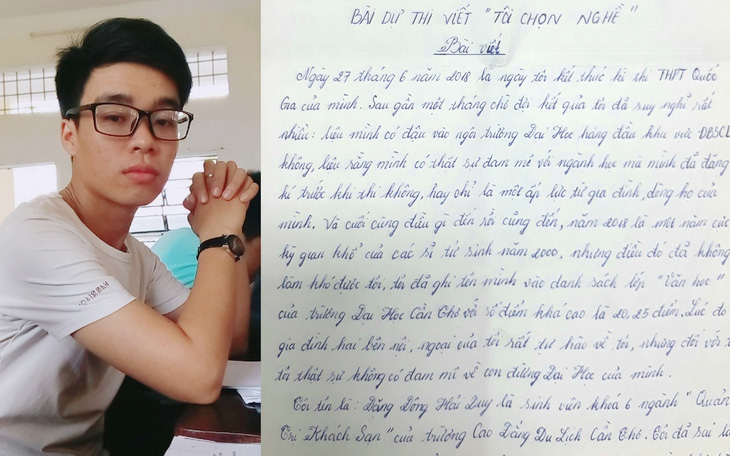 BÀI DỰ THI VIẾT "TÔI CHỌN NGHỀ"
Bài viết
Ngày 27 tháng 6 năm 2018 là ngày tôi kết thúc kì thi THPT Quốc
Gia của mình. Sau gần một tháng chờ đợi kết quả tôi đã suy nghĩ rất
nhiều: liệu mình có đậu vào ngôi trường Đại Học hàng đầu khu vực ĐBSCL
không, liệu rằng mình có thật sự đam mê với ngành học mà mình đã đăng
kí trước khi thi không, hay chỉ là một áp lực từ gia đình, dòng họ của
mình. Và cuối cùng điều gì đến rồi cũng đến, năm 2018 là một năm cực
kỳ gian khổ của các sĩ tử sinh năm 2000, nhưng điều đó đã không
làm khó được tôi, tôi đã ghi tên mình vào danh sách lớp "Văn học"
của trường Đại Học Cần Thơ với số điểm khá cao là 20,25 điểm. Lúc đó
gia đình hai bên nội, ngoại của tôi rất tự hào về tôi, nhưng đối với t
tôi thật sự không có đam mê về con đường Đại Học của mình.
Tôi tên là: Đặng Đông Hải Duy là sinh viên khoá 6 ngành "Quản
Trị Khách Sạn" của trường Cao Đẳng Du Lịch Cần Thơ. Tôi đã